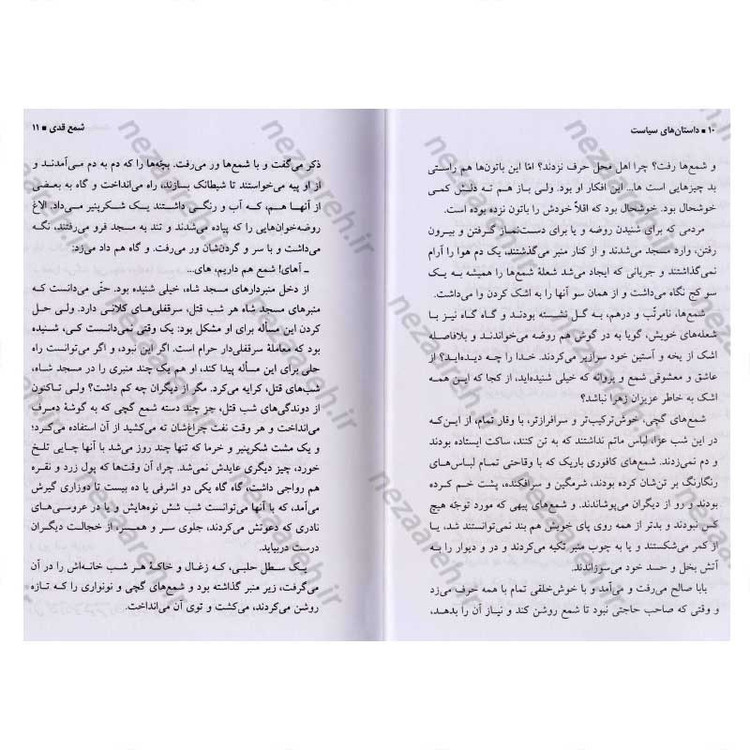 ۱۰ ■ داستان‌های سیاست
و شمع‌ها رفت؟ چرا اهل محل حرف نزدند؟ امّا این باتون‌ها هم راستی
بد چیزهایی است ها... این افکار او بود. ولی باز هم ته دلش کمی
خوشحال بود. خوشحال بود که اقلاً خودش را باتون نزده بوده است.
مردمی که برای شنیدن روضه و یا برای دست‌نماز گرفتن و بیرون
رفتن، وارد مسجد می‌شدند و از کنار منبر می‌گذشتند، یک دم هوا را آرام
نمی‌گذاشتند و جریانی که ایجاد می‌شد شعلهٔ شمع‌ها را همیشه به یک
سو کج نگاه می‌داشت و از همان سو آنها را به اشک کردن وا می‌داشت.
شمع‌ها، نامرتّب و درهم، به گل نشسته بودند و گاه گاه نیز با
شعله‌های خویش، گویا به در گوش هم روضه می‌خواندند و بلافاصله
اشک از یخه و آستین خود سرازیر می‌کردند. خدا را چه دیده‌اید؟ از
عاشق و معشوقی شمع و پروانه که خیلی شنیده‌اید، از کجا که این همه
اشک به خاطر عزیزان زهرا نباشد؟
شمع‌های گچی، خوش‌ترکیب‌تر و سرافرازتر، با وقار تمام، از این‌که
در این شب عزا، لباس ماتم نداشتند که به تن کنند، ساکت ایستاده بودند
و دم نمی‌زدند. شمع‌های کافوری باریک که با وقاحتی تمام لباس‌های
رنگارنگ بر تن‌شان کرده بودند، شرمگین و سرافکنده، پشت خم کرده
بودند و رو از دیگران می‌پوشاندند. و شمع‌های پیهی که مورد توجّه هیچ
کس نبودند و بدتر از همه روی پای خویش هم بند نمی‌توانستند شد، یا
از کمر می‌شکستند و یا به چوب منبر تکیه می‌کردند و در و دیوار را به
آتش بخل و حسد خود می‌سوزاندند.
بابا صالح می‌رفت و می‌آمد و با خوش‌خلقی تمام با همه حرف می‌زد
و وقتی که صاحب حاجتی نبود تا شمع روشن کند و نیاز آن را بدهد،
شمع قدی ■ ۱۱
ذکر می‌گفت و با شمع‌ها ور می‌رفت. بچّه‌ها را که دم به دم می‌آمدند و
از او پیه می‌خواستند تا شیطانک بسازند، راه می‌انداخت و گاه به بعضی
از آنها هم، که آب و رنگی داشتند یک شکرپنیر می‌داد. الاغ
روضه‌خوان‌هایی را که پیاده می‌شدند و تند به مسجد فرو می‌رفتند، نگه
می‌داشت و با سر و گردن‌شان ور می‌رفت. و گاه هم داد می‌زد:
ـ آهای! شمع هم داریم، های...
از دخل منبردارهای مسجد شاه، خیلی شنیده بود. حتّی می‌دانست که
منبرهای مسجد شاه هر شب قتل، سرقفلی‌های کلانی دارد. ولی حل
کردن این مسأله برای او مشکل بود: یک وقتی نمی‌دانست کی، شنیده
بود که معاملهٔ سرقفلی‌دار حرام است. اگر این نبود، و اگر می‌توانست راه
حلی برای این مسأله پیدا کند، او هم یک چند منبری را در مسجد شاه،
شب‌های قتل، کرایه می‌کرد. مگر از دیگران چه کم داشت؟ ولی تاکنون
از دوندگی‌های شب قتل، جز چند دسته شمع گچی که به گوشهٔ دم‌رف
می‌انداخت و هر وقت نفت چراغ‌شان ته می‌کشید از آن استفاده می‌کرد؛
و یک مشت شکرپنیر و خرما که تنها چند روز می‌شد با آنها چایی تلخ
خورد، چیز دیگری عایدش نمی‌شد. چرا، آن وقت‌ها که پول زرد و نقره
هم رواجی داشت، گاه گاه یکی دو اشرفی یا ده بیست تا دوزاری گیرش
می‌آمد، که با آنها می‌توانست شب شش نوه‌هایش و یا در عروسی‌های
نادری که دعوتش می‌کردند، جلوی سر و همسر، از خجالت دیگران
درست دربیاید.
یک سطل حلبی، که زغال و خاکهٔ هر شب خانه‌اش را در آن
می‌گرفت، زیر منبر گذاشته بود و شمع‌های گچی و نونواری را که تازه
روشن می‌کردند، می‌کشت و توی آن می‌انداخت.
nezaareh.ir